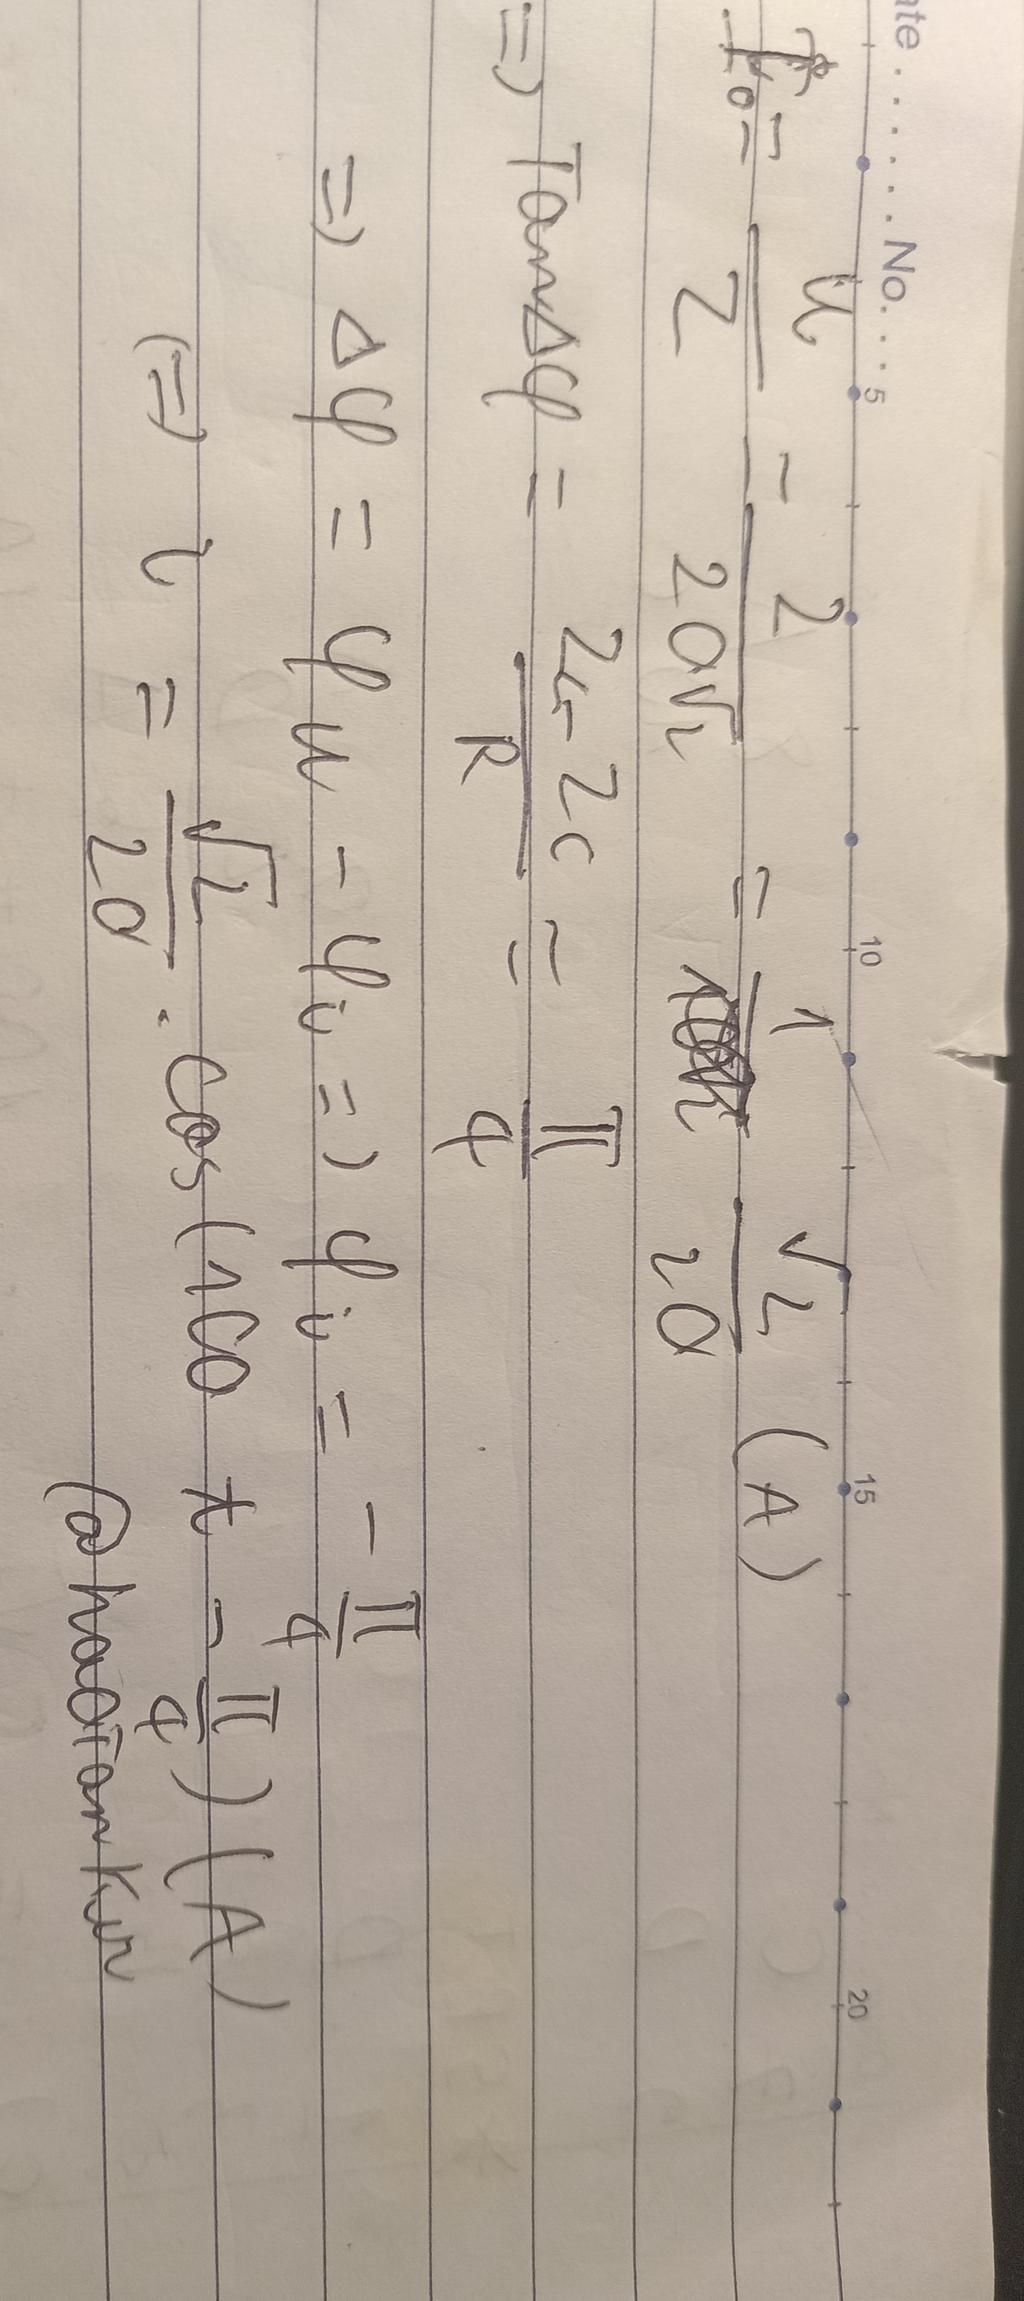 ate . . . . . . . No. . . .
5 10 15 20
I₀ = u/Z = 2/20√2 = 1/ √2/20 (A)
=) Tan Δφ = ZL - Zc/R = π/4
=) Δφ = φu - φi =) φi = - π/4
(=) i = √2/20 . cos(100 t - π/4) (A)
@hadrankur